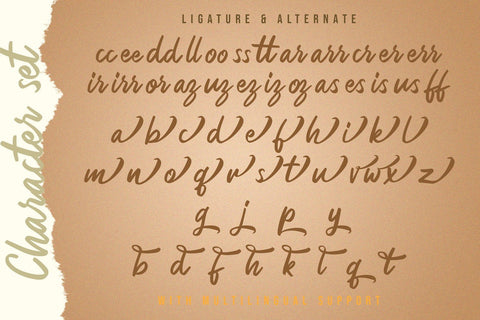 LIGATURE & ALTERNATE
cc ee dd ll oo ss tt ar arr cr er err
ir irr or az uz ez iz oz as es is us ff
a b c d e f h i k l
m n o q r s t u v w x z
g j p y
b d f h k l q t
WITH MULTI-LINGUAL SUPPORT
Character set